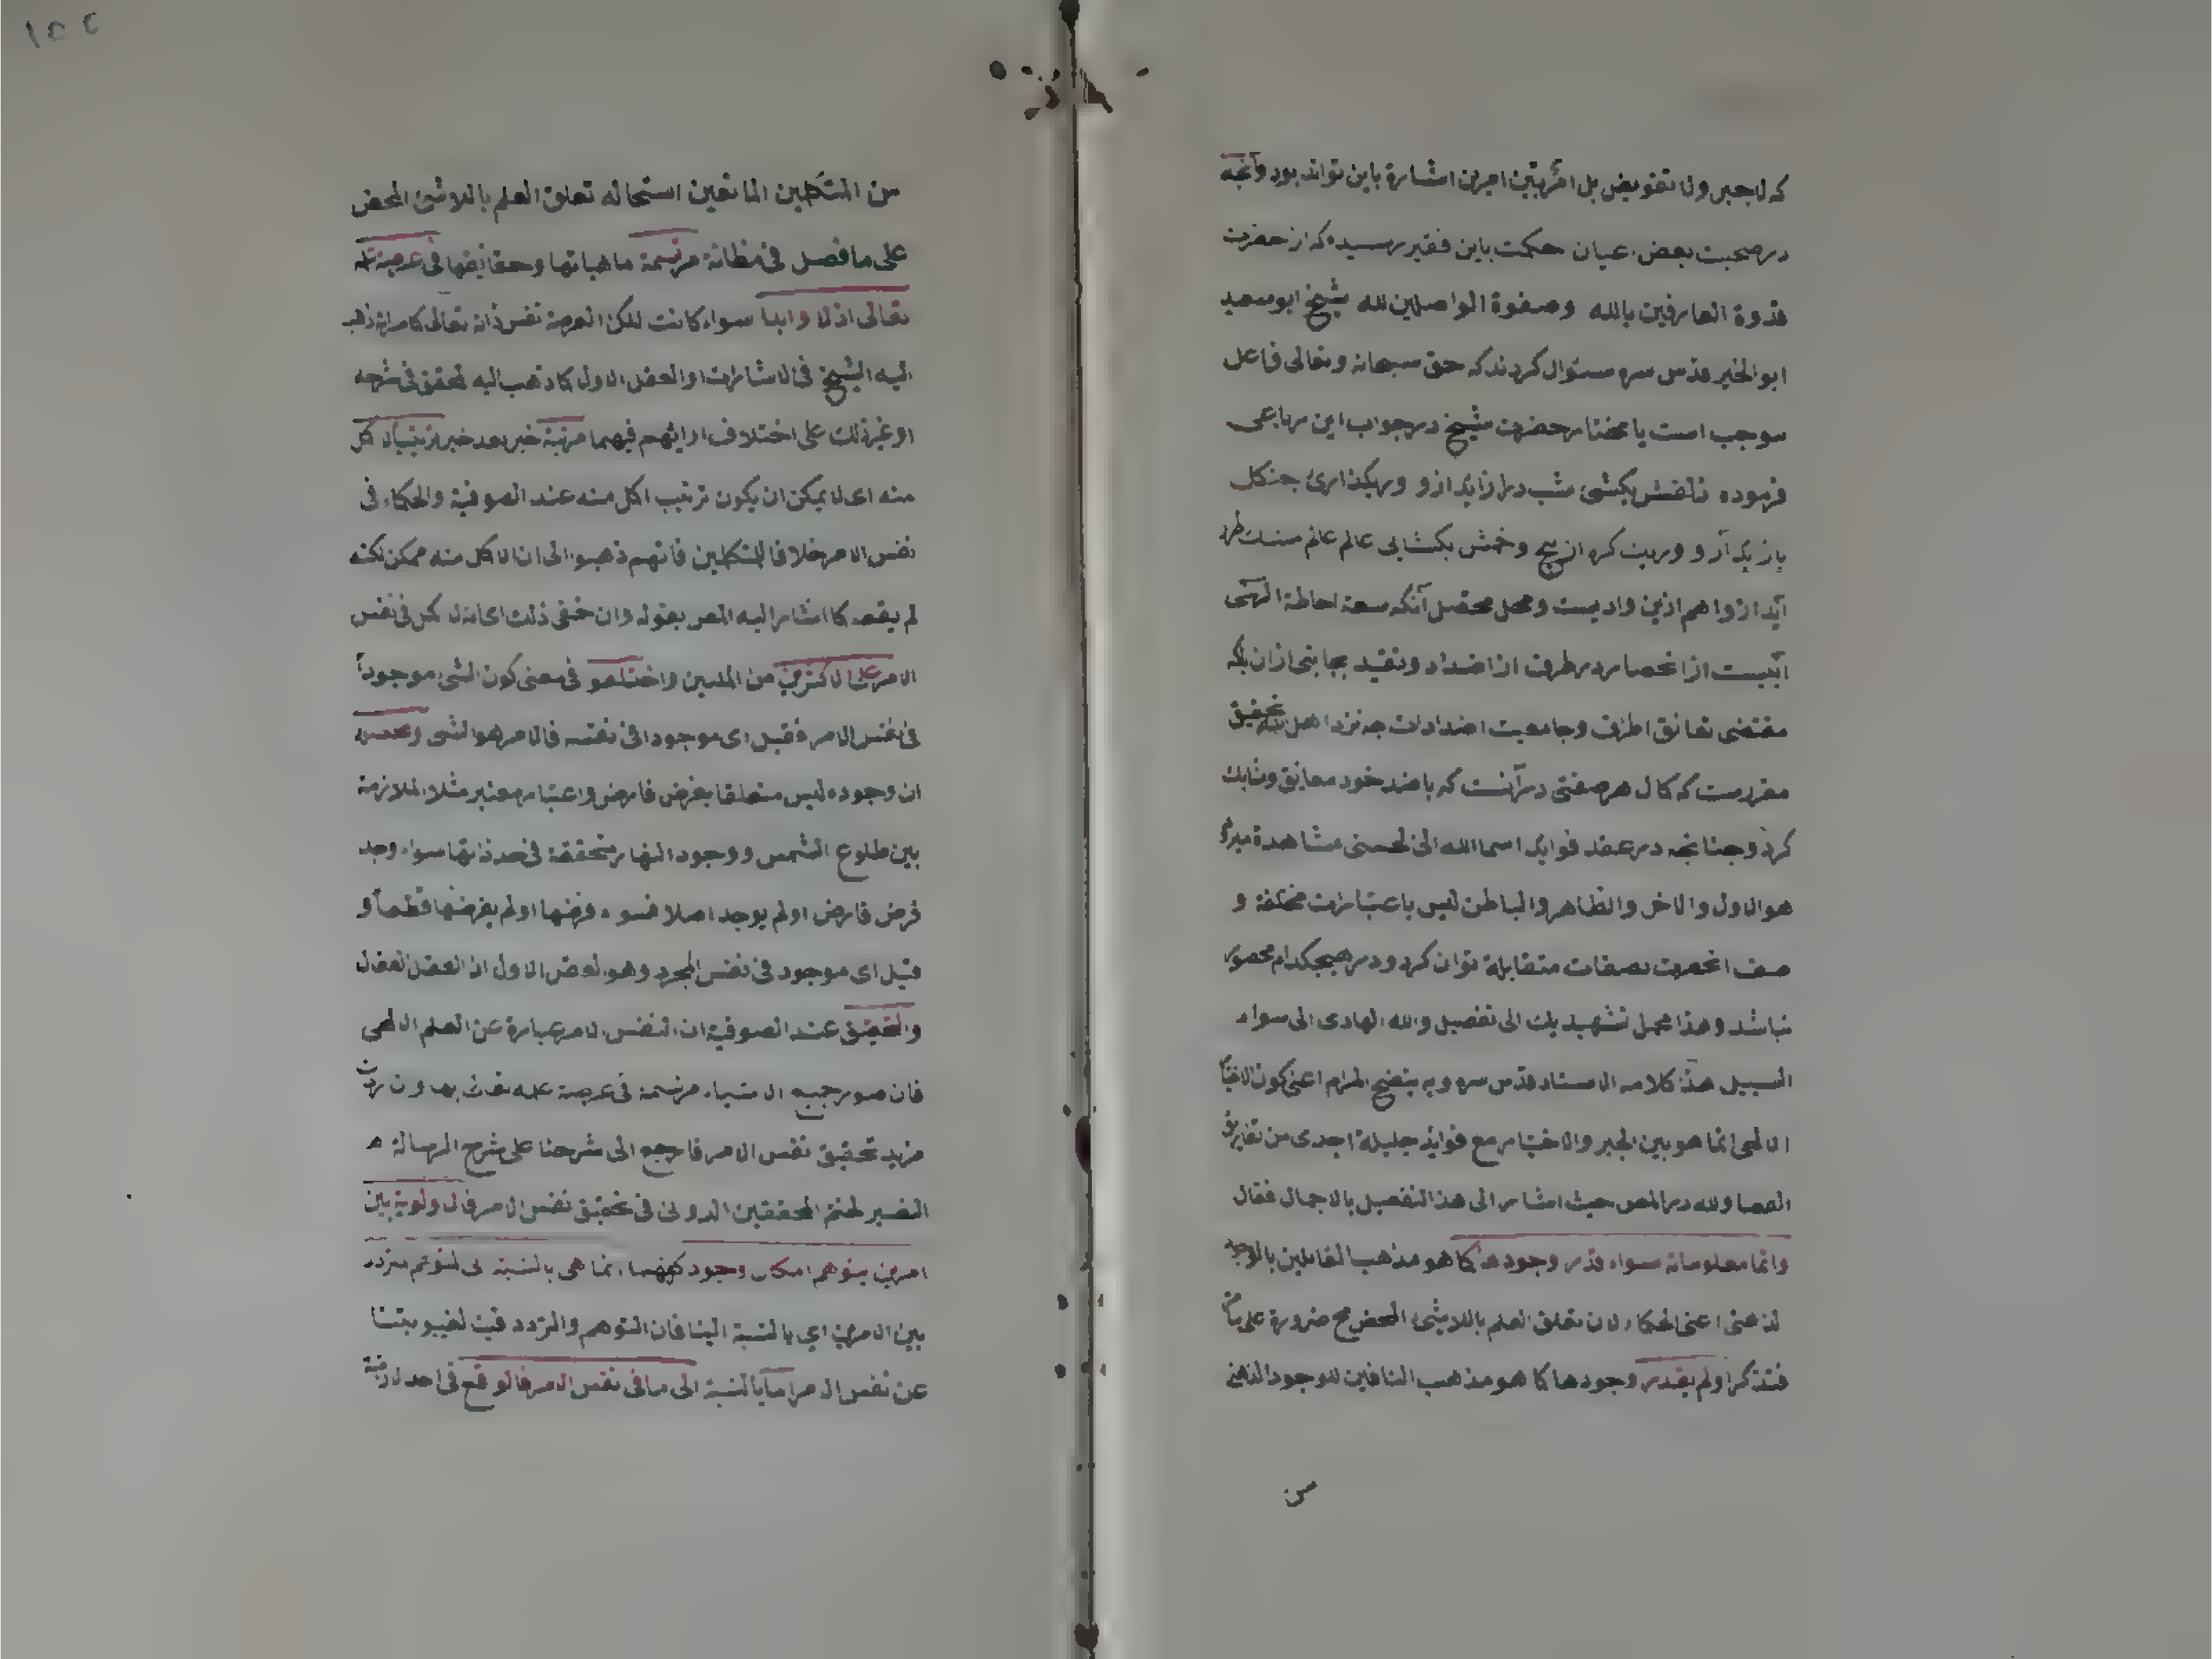 که لا جبر ولا تفویض بل امر بین امرین اشارة باین تواند بود وآنچه
در صحبت بعض اعیان حکمت باین فقیر رسیده که از حضرت
قدوة العارفین بالله وصفوة الواصلین لله شیخ ابو سعید
ابو الخیر قدس سره سئوال کردند که حق سبحانه وتعالی فاعل
موجب است یا مختار حضرت شیخ در جواب این رباعی
فرموده زلفش بکشی شب دراز آید ازو ور بکذاری چنکل
باز آید ازو ور پیچ وخمش بکشایی عالم عالم مشک
آید ازو هم ازین وادیست ومجمل محصل آنکه سعة احاطة الهی
آبیست از انحصار در طرف از اضداد وتقید بجانبی ازان بلکه
مقتضی تعانق اطراف وجامعیت اضدادات چه نزد اهل تحقیق
مقررست که کمال هر صفتی در آنست که با ضد خود معانق
کردد وچنانچه در عقد فواید اسما الله الحسنی مشاهدة میرود
هو الاول والاخر والظاهر والباطن لیس باعتبارات مختلفة و
صف انحضرت بصفات متقابلة توان کرد ودر هیچکدام محصور
نباشد وهذا مجمل تشهید بک الی تفصیل والله الهادی الی سواء
السبیل هذا کلامه الاستاد قدس سره وبه یتضح المرام اعنی کون الاختیار
الالهی انما هو بین الجبر والاختیار مع فواید جلیلة اجدی من تفاریق
العصا ولله در المص حیث اشار الی هذا التفصیل بالاجمال فقال
وانما معلوماته سواء قدر وجودها کما هو مذهب القائلین بالوجود
الذهنی اعنی الحکماء لان تعلق العلم باللاشیء المحض مح ضرورة علی ما
فتذکر او لم یقدر وجودها کما هو مذهب النافین للوجود الذهنی
من
١٥٤
من المتکلمین المانعین استحاله تعلق العلم باللاشئ المحض
علی ما فصل فی مظانه مرتسمة ماهیاتها وحقایقها فی عرصة علمه
تعالی ازلا وابدا سواء کانت تلک العرصة نفس ذاته تعالی کما ذهب
الیه الشیخ فی الاشارات او العقل الاول کما ذهب الیه المحقق فی شرحه
او غیر ذلک علی اختلاف ارائهم فیهما مرتبة خیر بعد خیر ترتیبا لا اکمل
منه ای لا یمکن ان یکون ترتیب اکمل منه عند الصوفیة والحکماء فی
نفس الامر خلافا للمتکلمین فانهم ذهبوا الی ان الاکمل منه ممکن لکنه
لم یقع کما اشار الیه المص بقوله وان خفی ذلک ای فی نفس
الامر علی الاکثرین من الملیین واختلفوا فی معنی کون الشیء موجوداً
فی نفس الامر فقیل ای موجودا فی نفسه فالامر هو الشیء ومحصله
ان وجوده لیس متعلقا بفرض فارض واعتبار معتبر مثلا الملازمة
بین طلوع الشمس ووجود النهار متحققة فی حد ذاتها سواء وجد
فرض فارض او لم یوجد اصلا فسواء فرضها او لم یفرضها قطعاً و
قیل ای موجود فی نفس المجرد وهو العقل الاول او العقل الفعال
والتحقیق عند الصوفیة ان نفس الامر عبارة عن العلم الالهی
فان صور جمیع الاشیاء مرتسمة فی عرصة علمه تعالی بها وان اردت
مزید تحقیق نفس الامر فارجع الی شرحنا علی شرح الرسالة
النصیر لختم المحققین الدوانی فی تحقیق نفس الامر فالاولویة بین
امرین یتوهم امکان وجود کلیهما انما هی بالنسبة الی المتوهم المتردد
بین الامرین ای بالنسبة الینا فان التوهم والتردد فینا لغیبوبتنا
عن نفس الامر اما بالنسبة الی ما فی نفس الامر فالواقع فی احد